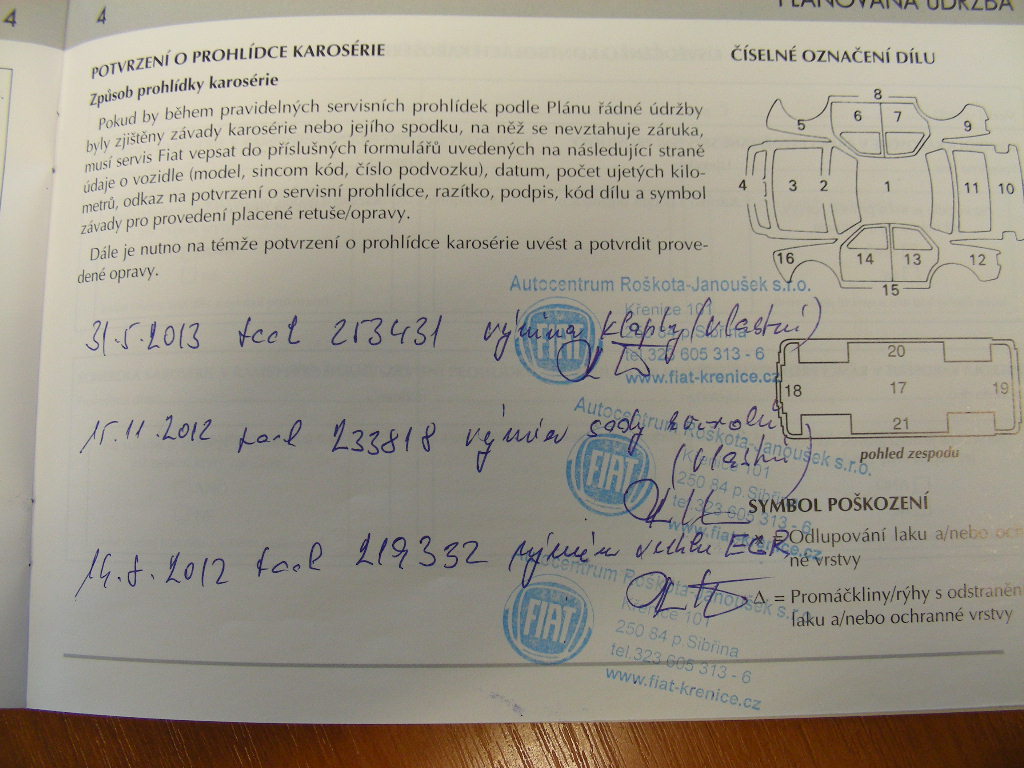 4
4
PLÁNOVANÁ ÚDRŽBA
POTVRZENÍ O PROHLÍDCE KAROSÉRIE
Způsob prohlídky karosérie
Pokud by během pravidelných servisních prohlídek podle Plánu řádné údržby
byly zjištěny závady karosérie nebo jejího spodku, na něž se nevztahuje záruka,
musí servis Fiat vepsat do příslušných formulářů uvedených na následující straně
údaje o vozidle (model, sincom kód, číslo podvozku), datum, počet ujetých kilo-
metrů, odkaz na potvrzení o servisní prohlídce, razítko, podpis, kód dílu a symbol
závady pro provedení placené retuše/opravy.
Dále je nutno na témže potvrzení o prohlídce karosérie uvést a potvrdit prove-
dené opravy.
ČÍSELNÉ OZNAČENÍ DÍLU
8
5 6 7 9
4 3 2 1 11 10
16 14 13 12
15
20
18 17 19
21
pohled zespodu
SYMBOL POŠKOZENÍ
= Odlupování laku a/nebo ochr
né vrstvy
Δ = Promáčkliny/rýhy s odstraněn
laku a/nebo ochranné vrstvy
Autocentrum Roškota-Janoušek s.r.o.
Křenice 101
250 84 p. Sibřina
tel.323 605 313 - 6
www.fiat-krenice.cz
FIAT
31.5.2013 tacl 253431 výměna klapky (vlastní)
Autocentrum Roškota-Janoušek s.r.o.
Křenice 101
250 84 p. Sibřina
tel.323 605 313 - 6
www.fiat-krenice.cz
FIAT
15.11.2012 tacl 233818 výměna sady
(vlastní)
Autocentrum Roškota-Janoušek s.r.o.
Křenice 101
250 84 p. Sibřina
tel.323 605 313 - 6
www.fiat-krenice.cz
FIAT
14.8.2012 tacl 219332 výměna ventilu EGR